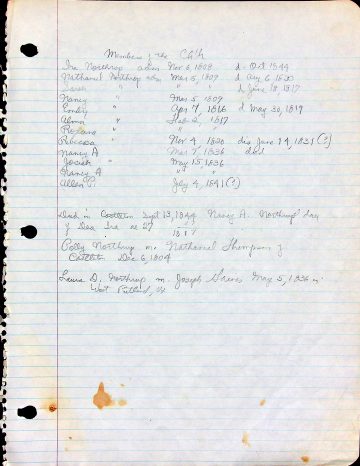 Members of the Ch'h
Ira Northrop adm Nov 6, 1808 d. Oct 1844
Nathaniel Northrop adm Mar 5, 1809 d Aug 6, 1820
Sarah " " " d June 18, 1817
Nancy Mar 5 1809
Emily " Apr 7, 1816 d May 30, 1819
Alma " Feb 2, 1817
Rozana " " "
Rebecca " Nov 4 1820 dis June 19, 1831 (?)
Nancy A Mar 7, 1836 died
Josiah " May 15, 1836
Nancy A " "
Allen P. July 4, 1841 (?)
Died in Castleton Sept 13, 1844 Nancy A. Northrup dau
of Dea Ira ae 27
1817
Polly Northrup m. Nathaniel Thompson of
Castleton Dec 6, 1804
Laura D. Northrup m. Joseph Gaines May 5, 1836 in
West Rutland, Vt